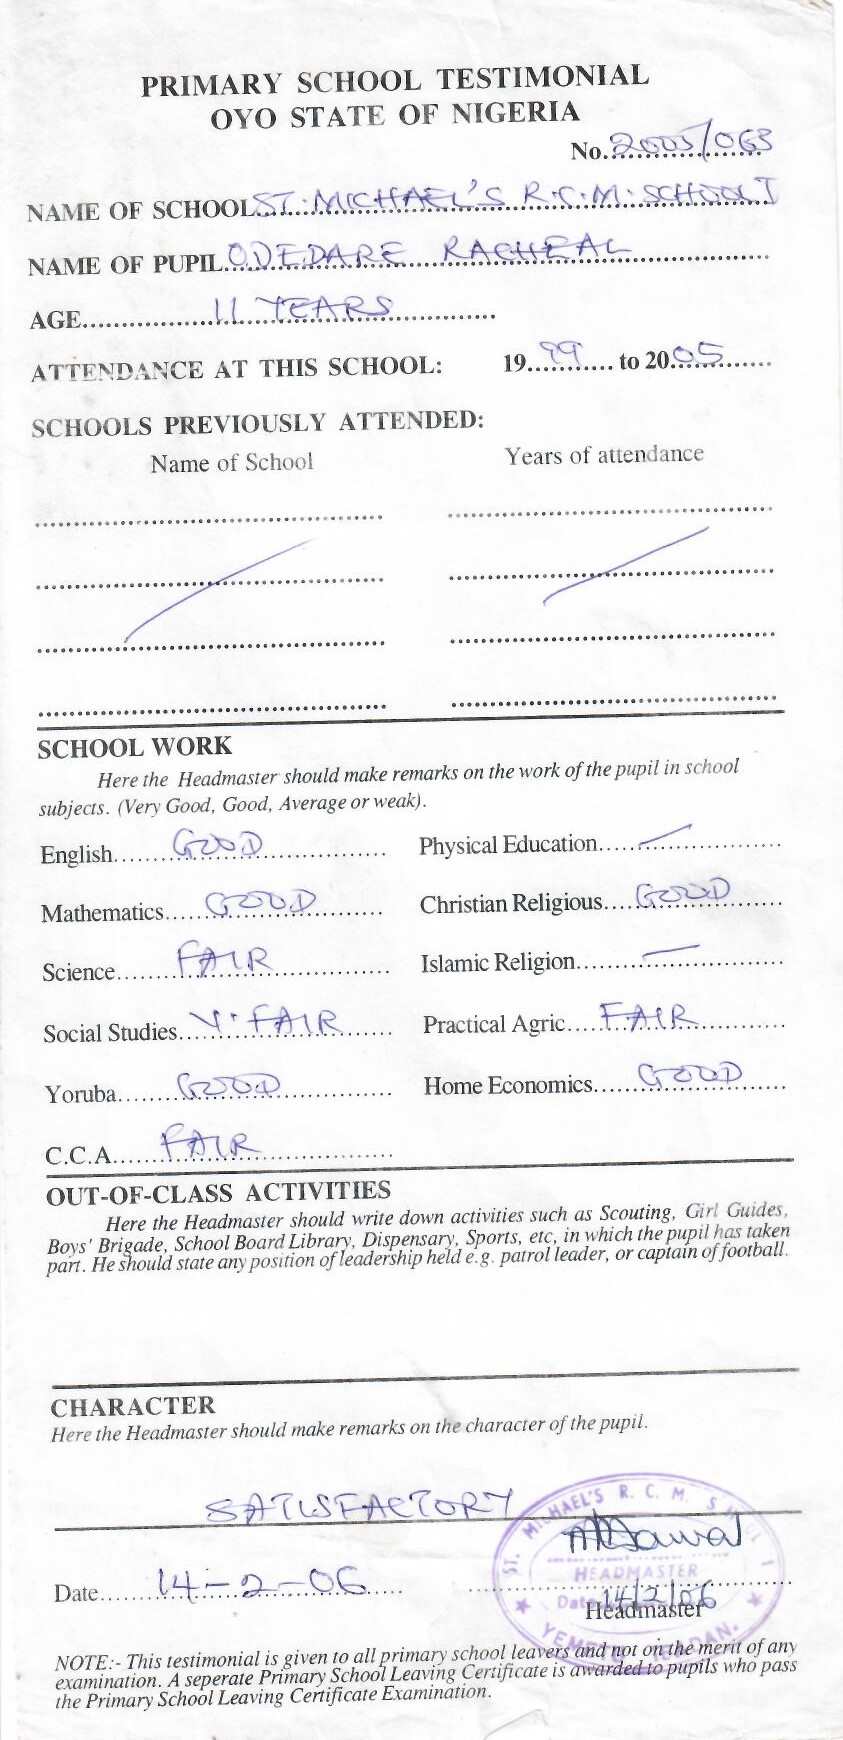 PRIMARY SCHOOL TESTIMONIAL
OYO STATE OF NIGERIA
No. 2005/063
NAME OF SCHOOL ST. MICHAEL'S R.C.M. SCHOOL I
NAME OF PUPIL ODEDARE RACHEAL
AGE 11 YEARS
ATTENDANCE AT THIS SCHOOL: 19 99 to 20 05
SCHOOLS PREVIOUSLY ATTENDED:
Name of School Years of attendance
SCHOOL WORK
Here the Headmaster should make remarks on the work of the pupil in school
subjects. (Very Good, Good, Average or weak).
English GOOD Physical Education —
Mathematics GOOD Christian Religious GOOD
Science FAIR Islamic Religion —
Social Studies V. FAIR Practical Agric FAIR
Yoruba GOOD Home Economics GOOD
C.C.A FAIR
OUT-OF-CLASS ACTIVITIES
Here the Headmaster should write down activities such as Scouting, Girl Guides,
Boys' Brigade, School Board Library, Dispensary, Sports, etc, in which the pupil has taken
part. He should state any position of leadership held e.g. patrol leader, or captain of football.
CHARACTER
Here the Headmaster should make remarks on the character of the pupil.
SATISFACTORY
ST. MICHAEL'S R. C. M. SCHOOL 1
HEADMASTER
Date 14/2/06
YEMETU IBADAN.
Date 14-2-06
Headmaster
NOTE:- This testimonial is given to all primary school leavers and not on the merit of any
examination. A seperate Primary School Leaving Certificate is awarded to pupils who pass
the Primary School Leaving Certificate Examination.